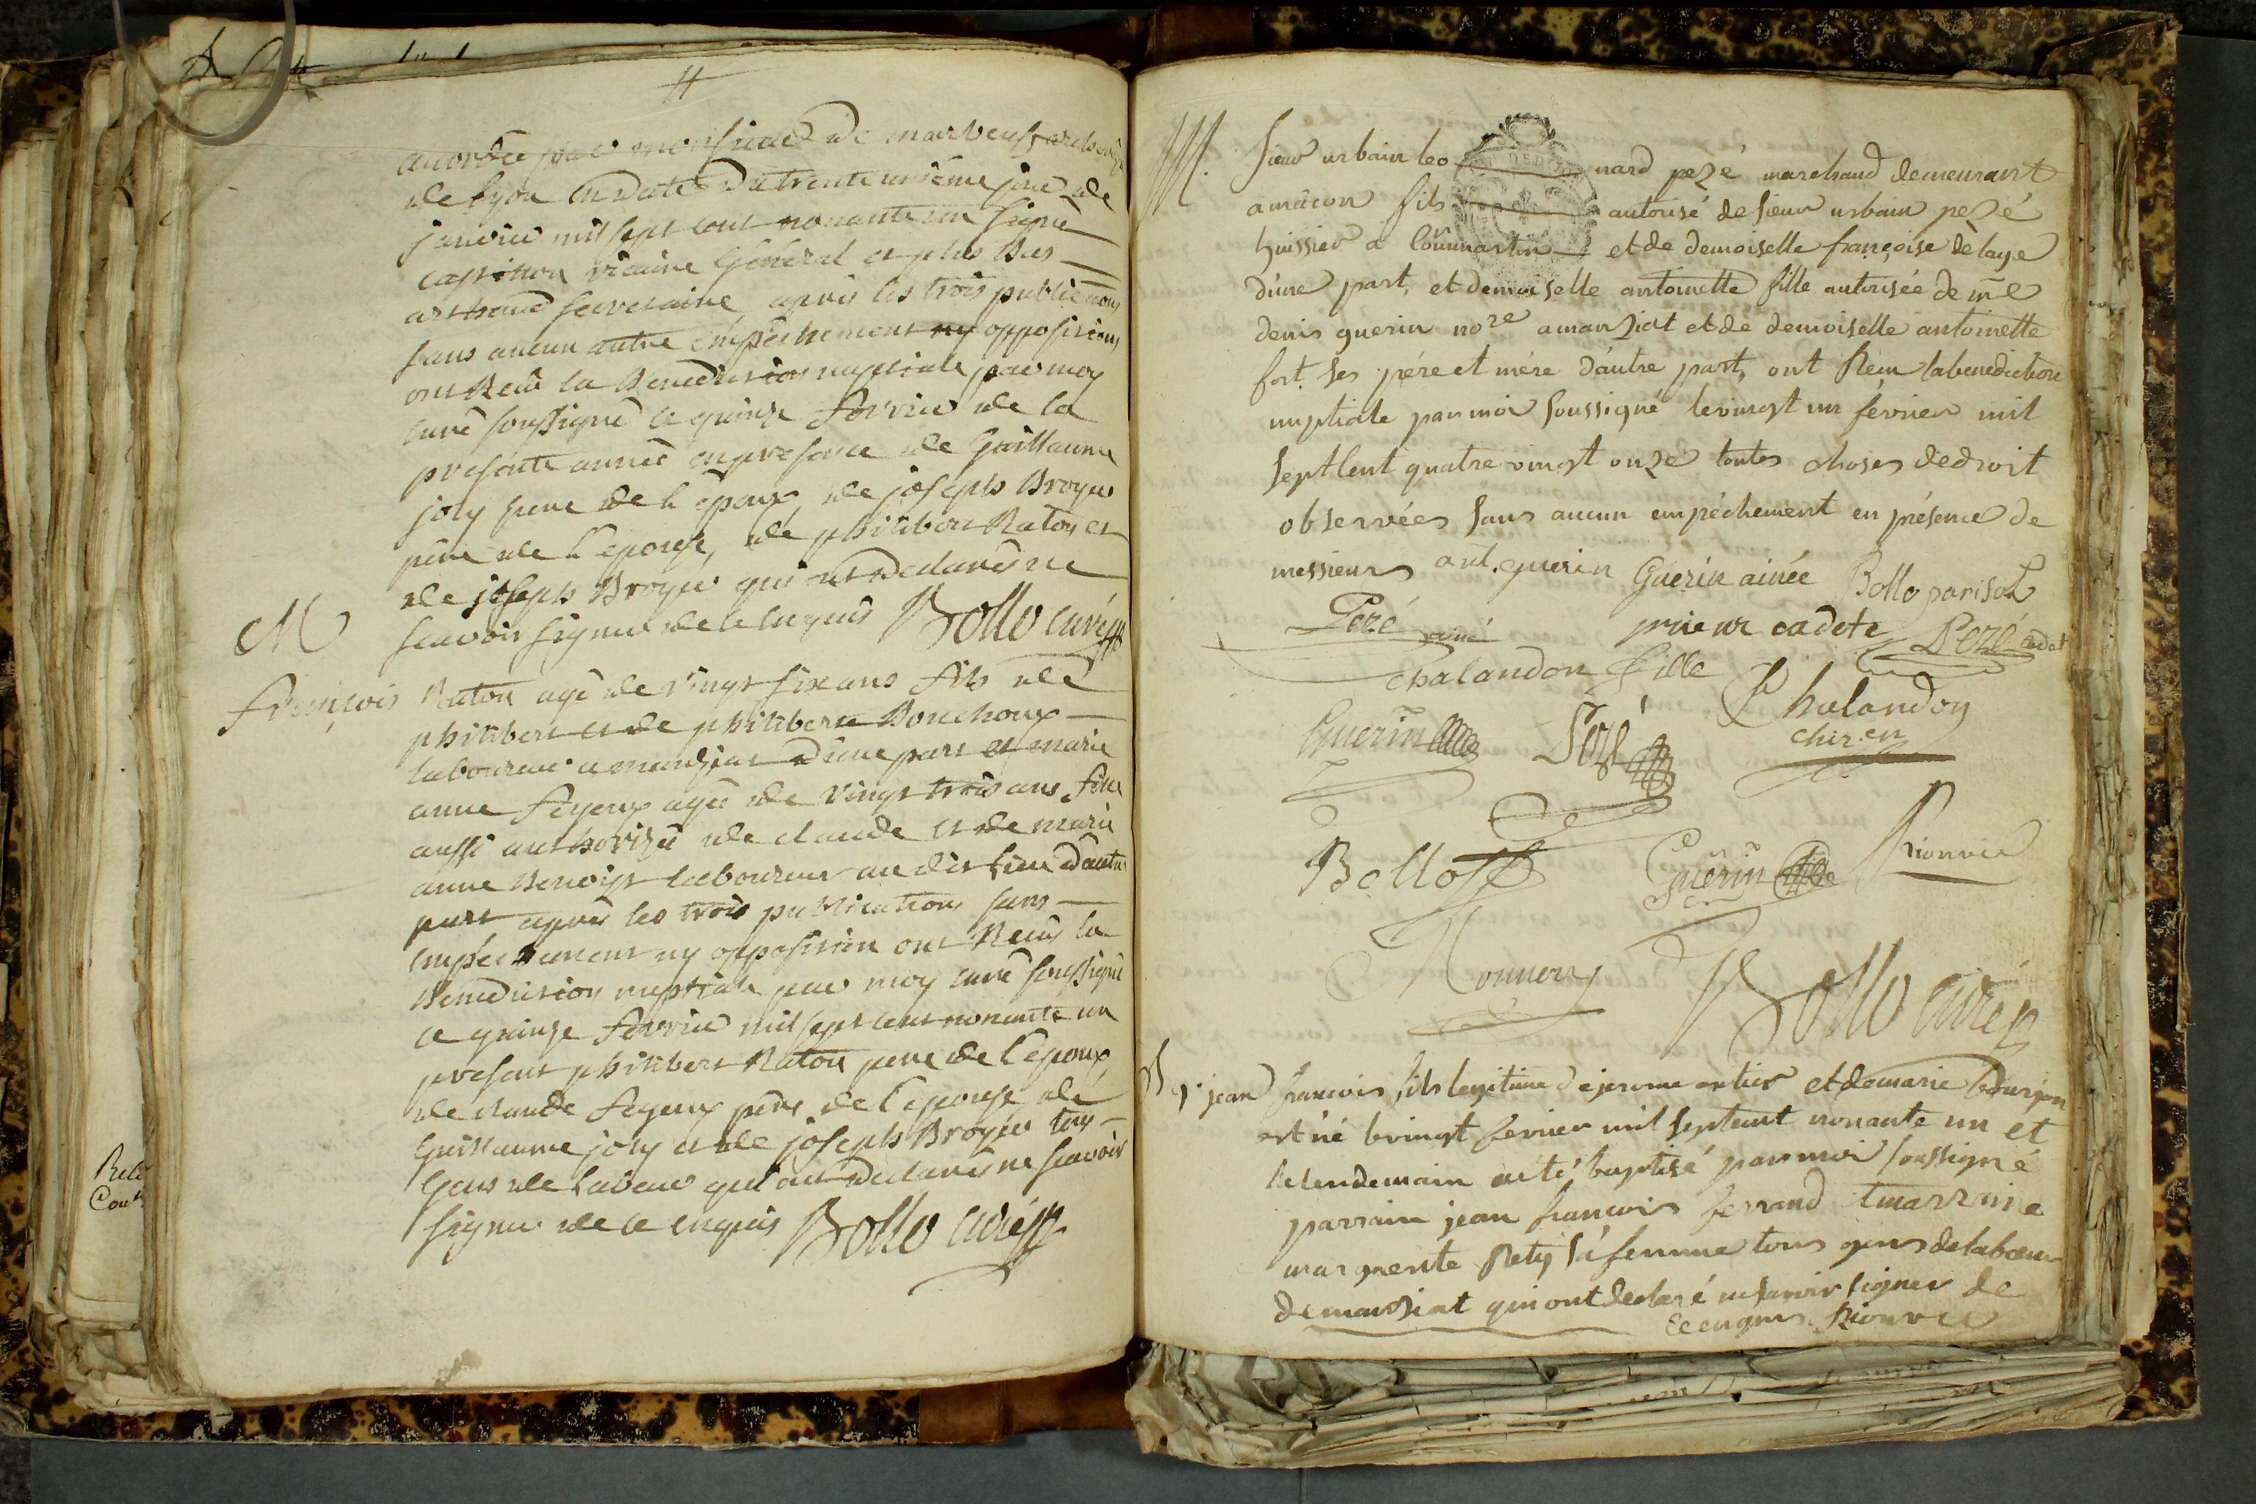 accordée par monsieur de marbeuf archevêq
de lyon en date du trente unième jour de
janvier mil sept cent nonante un signé
castillon vicaire Général et plus Bas
arthaud secretaire après les trois publications
sans aucun autre empêchement ny opposition
ont Recû la Benediction nuptiale par moy
curé soussigné le quinze fevrier de la
presente année en presence de Guillaume
joly pere de l'epoux, de joseph Broyer
père de l'epouse, de philibert Raton et
de joseph Broyer qui ont declarés ne
scavoir signer de ce enquis Bollo curé
M
françois Raton agé de vingt six ans fils de
philibert et de philiberte Bouchoux
laboureur a manziat d'une part et marie
anne feyeux agée de vingt trois ans fille
aussi authorizée de claude et de marie
anne Benoist laboureur au dit lieu d'autre
part après les trois publications sans
empechement ny opposition ont Recus la
Benediction nuptiale par moy curé soussigné
ce quinze fevrier mil sept cent nonante un
present philibert Raton pere de l'epoux,
de claude feyeux père de l'epouse de
Guillaume joly et de joseph Broyer tous
Gens de Labeur qui ont declarés ne scavoir
signer de ce enquis Bollo curé
M. sieur urbain leonard pezé marchand demeurant
a mâcon fils autorisé de sieur urbain pezé
huissier a et de demoiselle françoise delaye
d'une part, et demoiselle antoinette fille autorisée de me
denis guerin nore a manziat et de demoiselle antoinette
fort. ses pére et mére d'autre part, ont Reçu la benediction
nuptiale par moi soussigné le vingt un février mil
sept Cent quatre vingt onze toutes choses de droit
observées sans aucun empéchement en présence de
messieurs ant. guerin Guerin ainée Bollo parisot
Pezé ainé prieur cadete Pezé cadet
chalandon fille Chalandon
Guerin Pezé chir.en
Bollo Guerin Rionver
Monnery Bollo curé
jean francois fils legitime de jerome antier et de marie bourgeon
est né le vingt fevrier mil sept cent nonante un et
le lendemain a été baptisé par moi soussigné
parrain jean francois ferrand marraine
marguerite Rety sa femme tous gens de labeur
de manziat qui ont declaré ne savoir signer de
ce enquis. Rionver